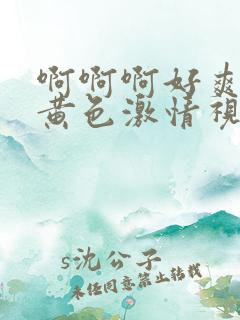 啊啊啊好爽
黄色激情視
s沈公子
未经同意禁止转载